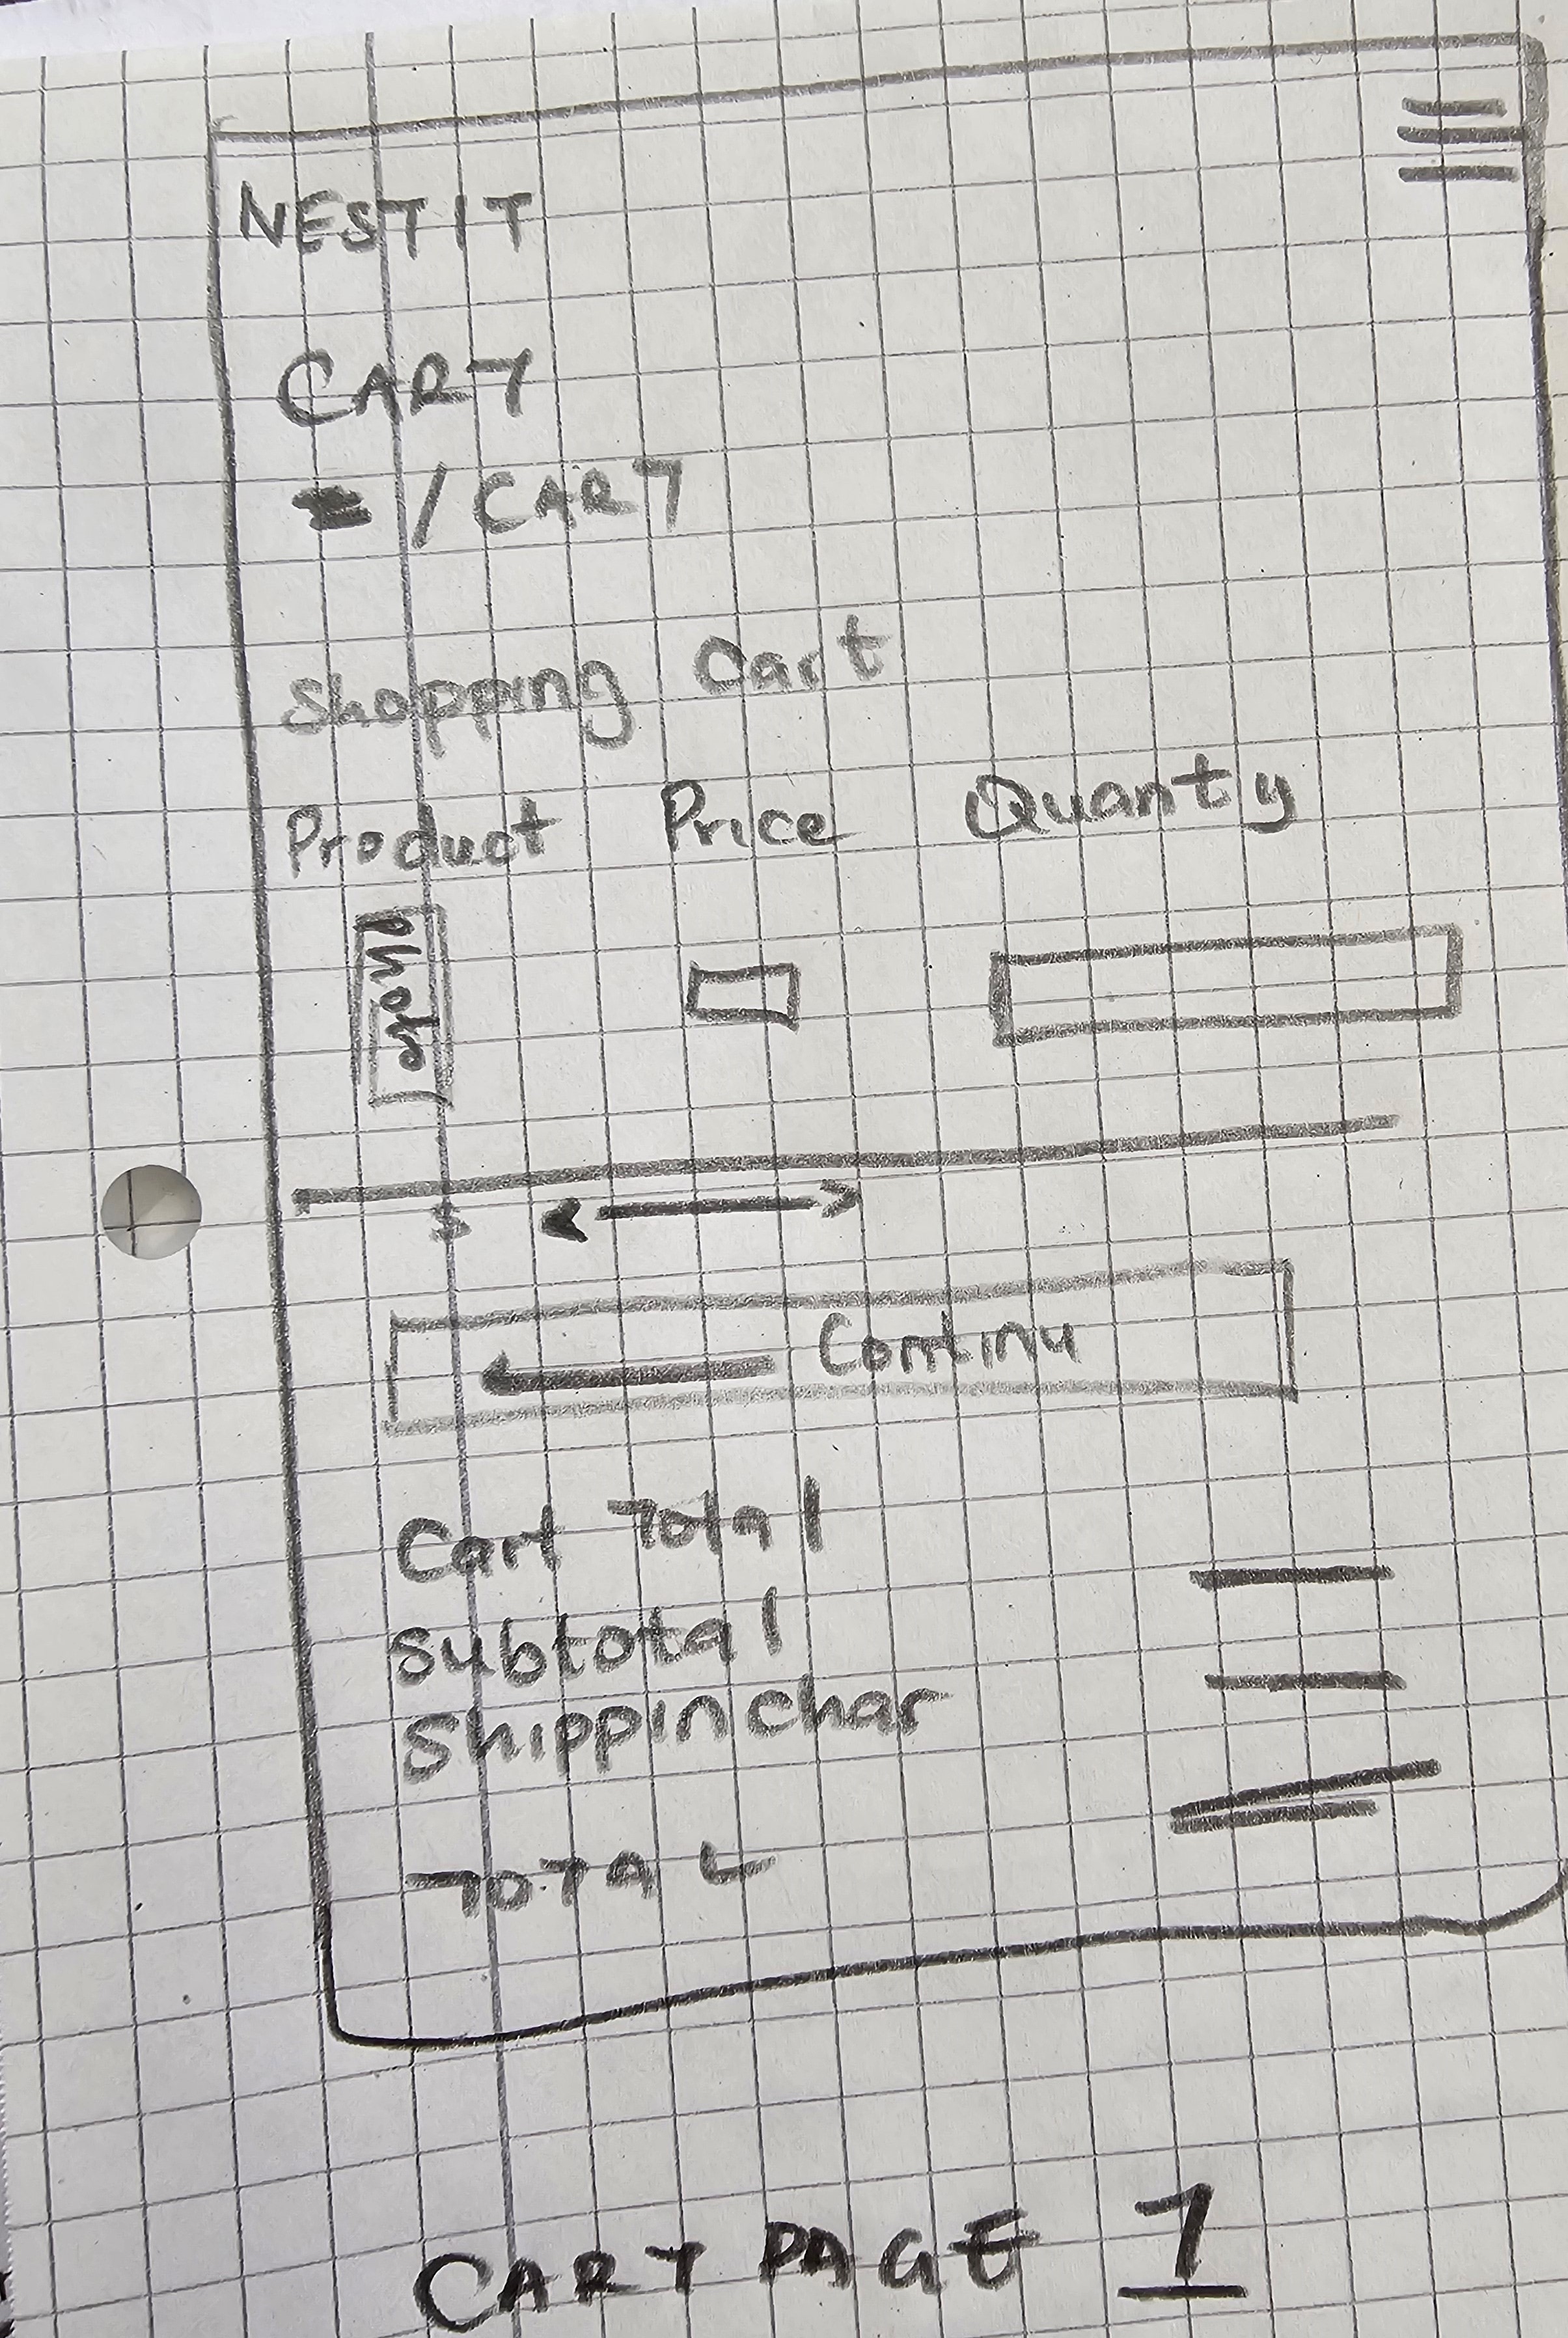 NESTIT
CART
/ CART
Shopping Cart
Product Price Quanty
Photo
$
Continu
Cart Total
Subtotal
Shippinchar
TOTAL
CART PAGE 1